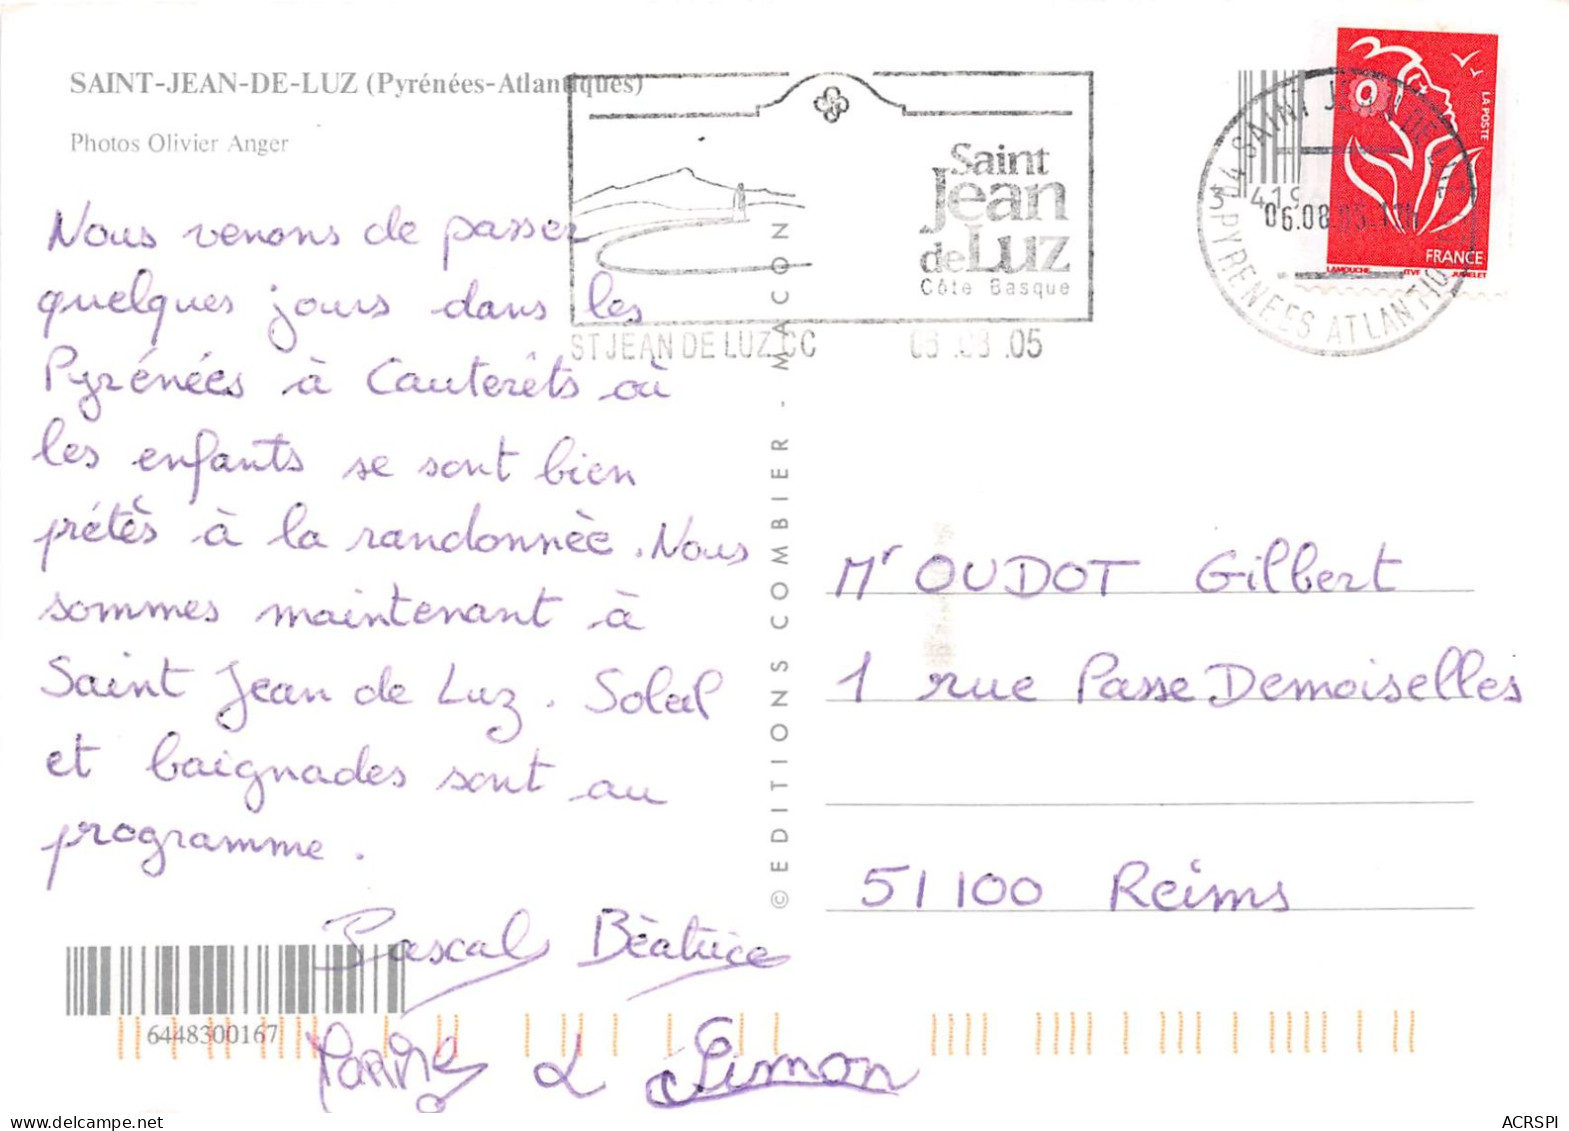 SAINT-JEAN-DE-LUZ (Pyrénées-Atlantiques)
Photos Olivier Anger
Saint
Jean
de Luz
Côte Basque
ST JEAN DE LUZ CC
.05
LA POSTE
FRANCE
LAMOUCHE ITVF JUMELET
06.08.05
PYRENEES ATLANTIQ
Nous venons de passer
quelques jours dans les
Pyrénées à Cauterêts où
les enfants se sont bien
prétés à la randonnée. Nous
sommes maintenant à
Saint Jean de Luz. Soleil
et baignades sont au
programme.
Pascal Béatrice
& Simon
© EDITIONS COMBIER - MACON
Mr OUDOT Gilbert
1 rue Passe Demoiselles
51100 Reims
6448300167
ACRSPI